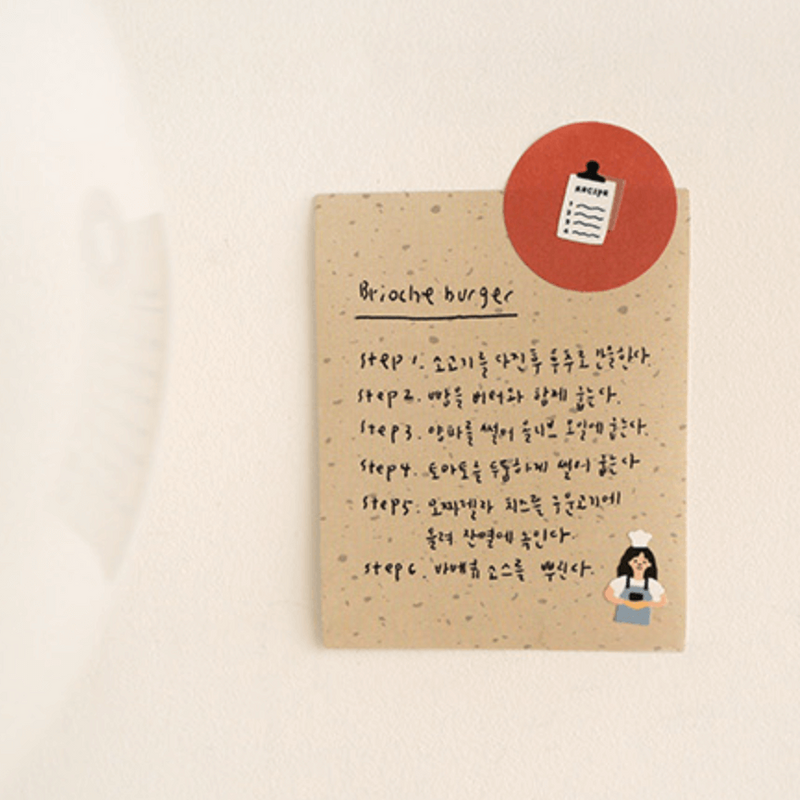 RECIPE
1
2
3
4
Brioche burger
Step 1. 소고기를 다진후 후추로 만들한다.
Step 2. 빵을 버터와 함께 굽는다.
Step 3. 양파를 썰어 올리브 오일에 굽는다.
Step 4. 토마토를 두툼하게 썰어 굽는다
Step 5. 모짜렐라 치즈를 구운고기에
올려 잔열에 녹인다.
Step 6. 바베큐 소스를 뿌린다.